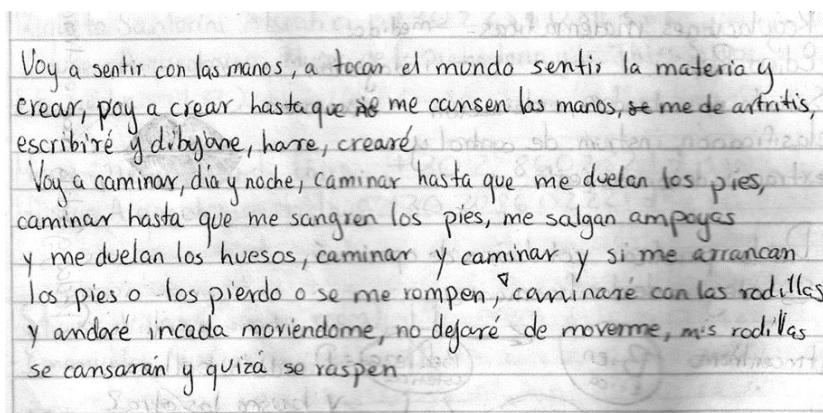 Voy a sentir con las manos, a tocar el mundo sentir la materia y
crear, voy a crear hasta que se me cansen las manos, se me de artritis,
escribiré y dibujare, hare, crearé
Voy a caminar, dia y noche, caminar hasta que me duelan los pies,
caminar hasta que me sangren los pies, me salgan ampoyas
y me duelan los huesos, caminar y caminar y si me arrancan
los pies o los pierdo o se me rompen, caminaré con las rodillas
y andaré incada moviendome, no dejaré de moverme, mis rodillas
se cansarán y quizá se raspen